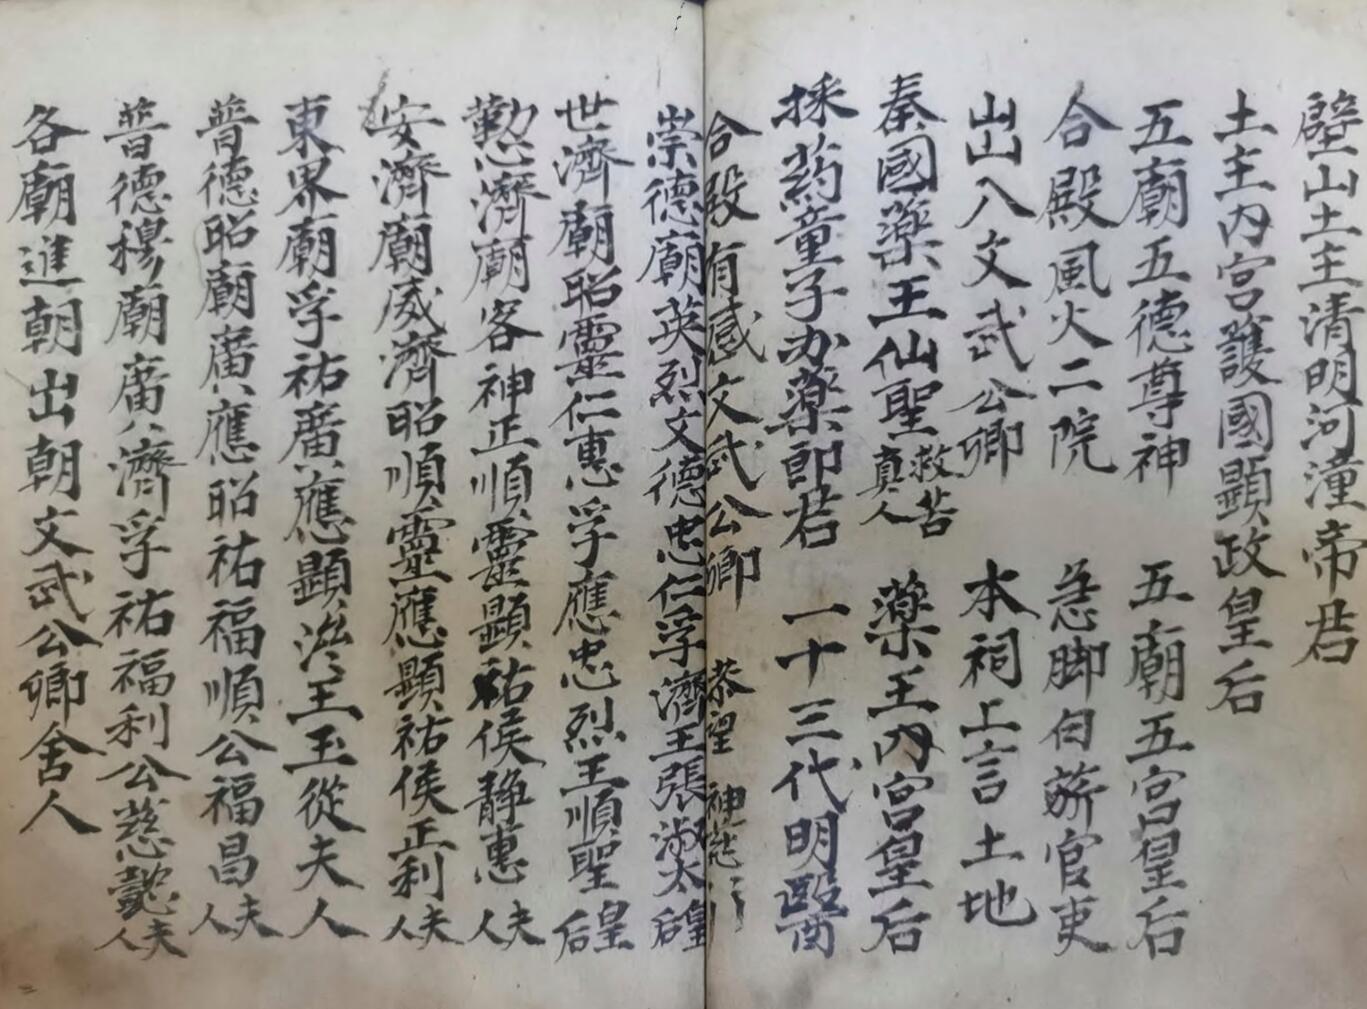 壁山土主清明河潼帝君
土主內宮護國顯政皇后
五廟五德尊神　五廟五宮皇后
合殿風火二院　急脚曰
官吏
出出入文武公卿　本祠上言土地
秦國藥王仙聖救苦真人　藥王內宮皇后
採药童子办藥郎君　一十三代明醫
合殿有感文武公卿　恭望　神慈
崇德廟英烈文德忠仁孚濟王張淑太皇后
世濟廟昭靈仁惠孚應忠烈王順聖皇后
懃濟廟客神正順靈顯祐侯靜惠夫人
安濟廟威濟昭順靈應顯祐侯正利夫人
東界廟孚祐廣應顯濟王玉從夫人
普德昭廟廣應昭祐福順公福昌夫人
普德穆廟廣濟孚祐福利公慈懿夫人
各廟進朝出朝文武公卿舍人